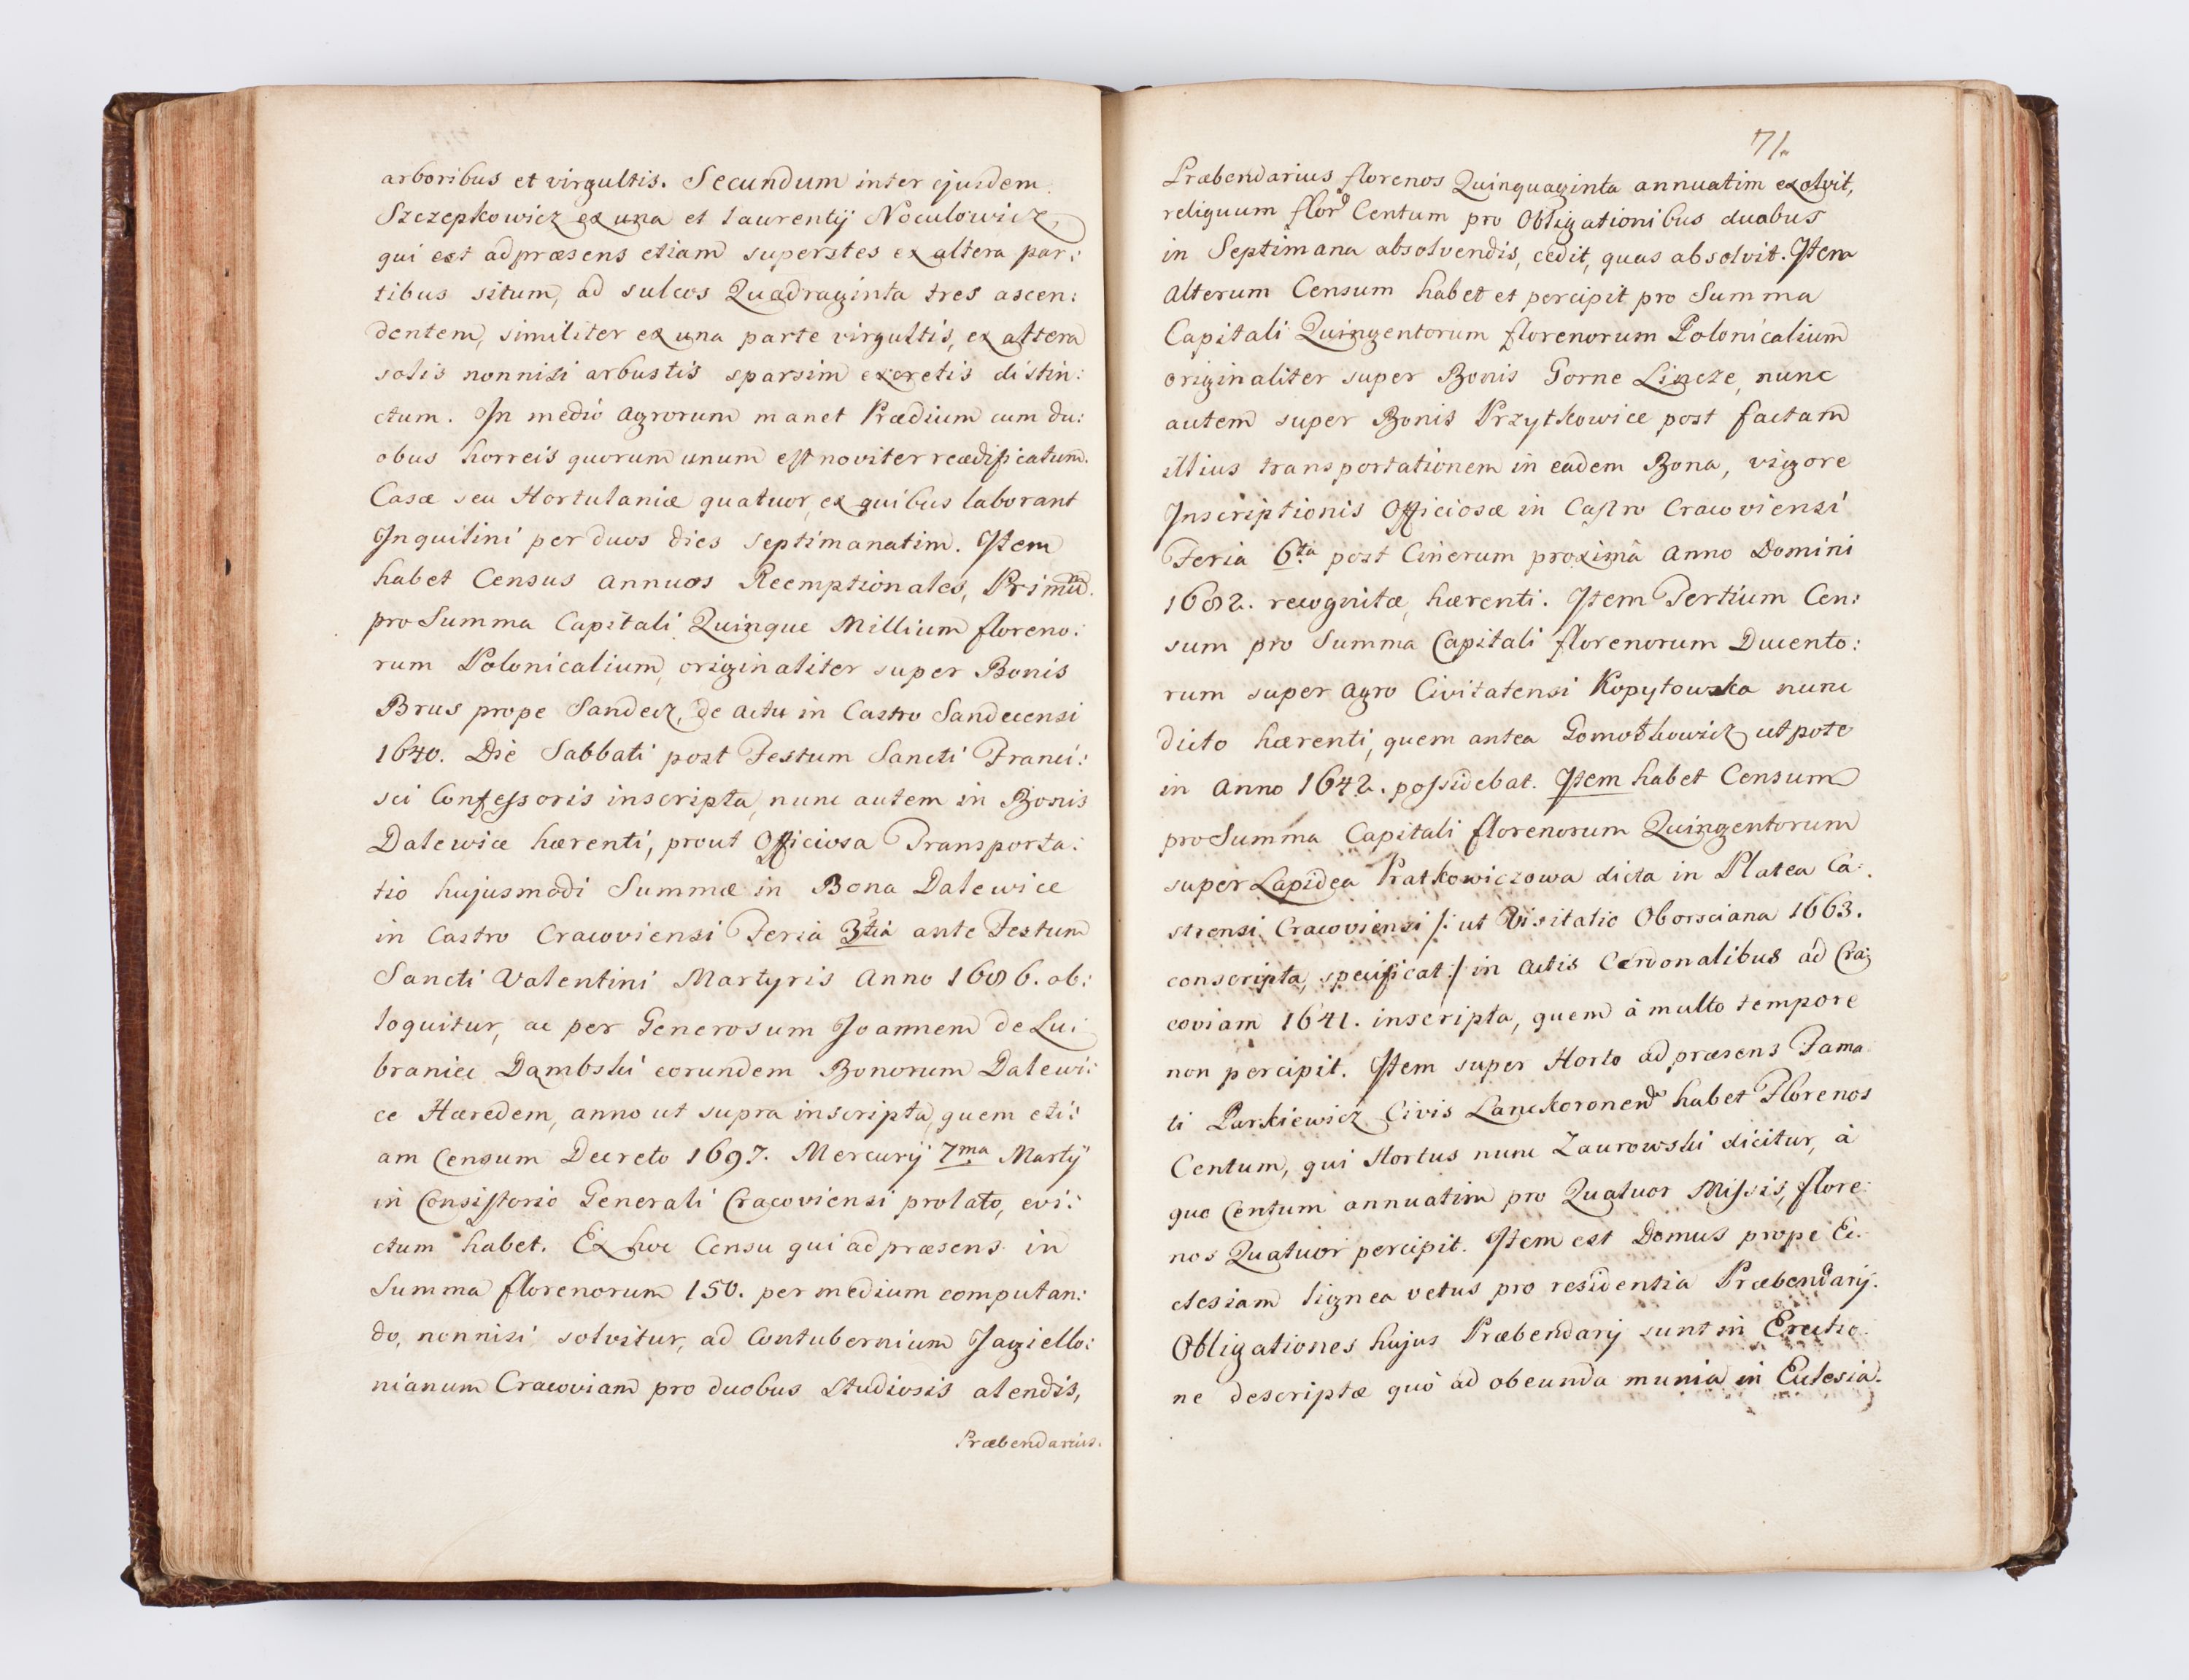 arboribus et virgultis. Secundum inter ejusdem
Szczepkowicz ex una et Laurentij Noculowicz,
qui est ad præsens etiam superstes ex altera par:
tibus situm, ad sulcos Quadraginta tres ascen:
dentem, similiter ex una parte virgultis, ex altera
solis nonnisi arbustis sparsim excretis distin:
ctum. In medio agrorum manet Prædium cum du:
obus horreis quorum unum est noviter reædificatum.
Casæ seu Hortulaniæ quatuor, ex quibus laborant
Inquilini per duos dies septimanatim. Item
habet Census annuos Reemptionales, Primum.
pro Summa Capitali Quinque Millium floreno:
rum Polonicalium, originaliter super Bonis
Brus prope Sandecz, de actu in Castro Sandecensi
1640. Die Sabbati post Festum Sancti Franci:
sci Confessoris inscripta, nunc autem in Bonis
Dalewice hærenti, prout Officiosa Transporta:
tio hujusmodi Summæ in Bona Dalewice
in Castro Cracoviensi Feria 3tia ante Festum
Sancti Valentini Martyris Anno 1686. ob:
loquitur, ac per Generosum Joannem de Lu:
braniec Dambski eorundem Bonorum Dalewi:
ce Hæredem, anno ut supra inscripta, quem eti:
am Censum Decreto 1697. Mercurij 7ma Martij
in Consistorio Generali Cracoviensi prolato, evi:
ctum habet. Ex hoc Censu qui ad præsens in
Summa florenorum 150. per medium computan:
do, nonnisi solvitur, ad Contubernium Jagiello:
nianum Cracoviam pro duobus Studiosis alendis,
Præbendarius.
71.
Præbendarius florenos Quinquaginta annuatim exolvit,
reliquum flor. Centum pro Obligationibus duabus
in Septimana absolvendis, cedit, quas absolvit. Item
Alterum Censum habet et percipit pro Summa
Capitali Quingentorum florenorum Polonicalium
originaliter super Bonis Gorne Lincze, nunc
autem super Bonis Przytkowice post factam
illius transportationem in eadem Bona, vigore
Inscriptionis Officiosæ in Castro Cracoviensi
Feria 6ta post Cinerum proximâ Anno Domini
1682. recognitæ, hærenti. Item Tertium Cen:
sum pro Summa Capitali florenorum Ducento:
rum super agro Civitatensi Kopytowska nunc
dicto hærenti, quem antea Gomołkowicz utpote
in Anno 1642. possidebat. Item habet Censum
pro Summa Capitali florenorum Quingentorum
super Lapidea Pratkowiczowa dicta in Platea Ca:
strensi Cracoviensi /: ut Visitatio Oborsciana 1663.
conscripta, specificat :/ in Actis Cerdonalibus ad Cra:
coviam 1641. inscripta, quem à multo tempore
non percipit. Item super Horto ad præsens Fama
ti Parkiewicz Civis Lanckoronens habet Florenos
Centum, qui Hortus nunc Zaurowski dicitur, à
quo Centum annuatim pro Quatuor Missis, flore:
nos Quatuor percipit. Item est Domus prope Ec:
clesiam lignea vetus pro residentia Præbendarij.
Obligationes hujus Præbendarij sunt in Erectio:
ne descriptæ quò ad obeunda munia in Ecclesia.